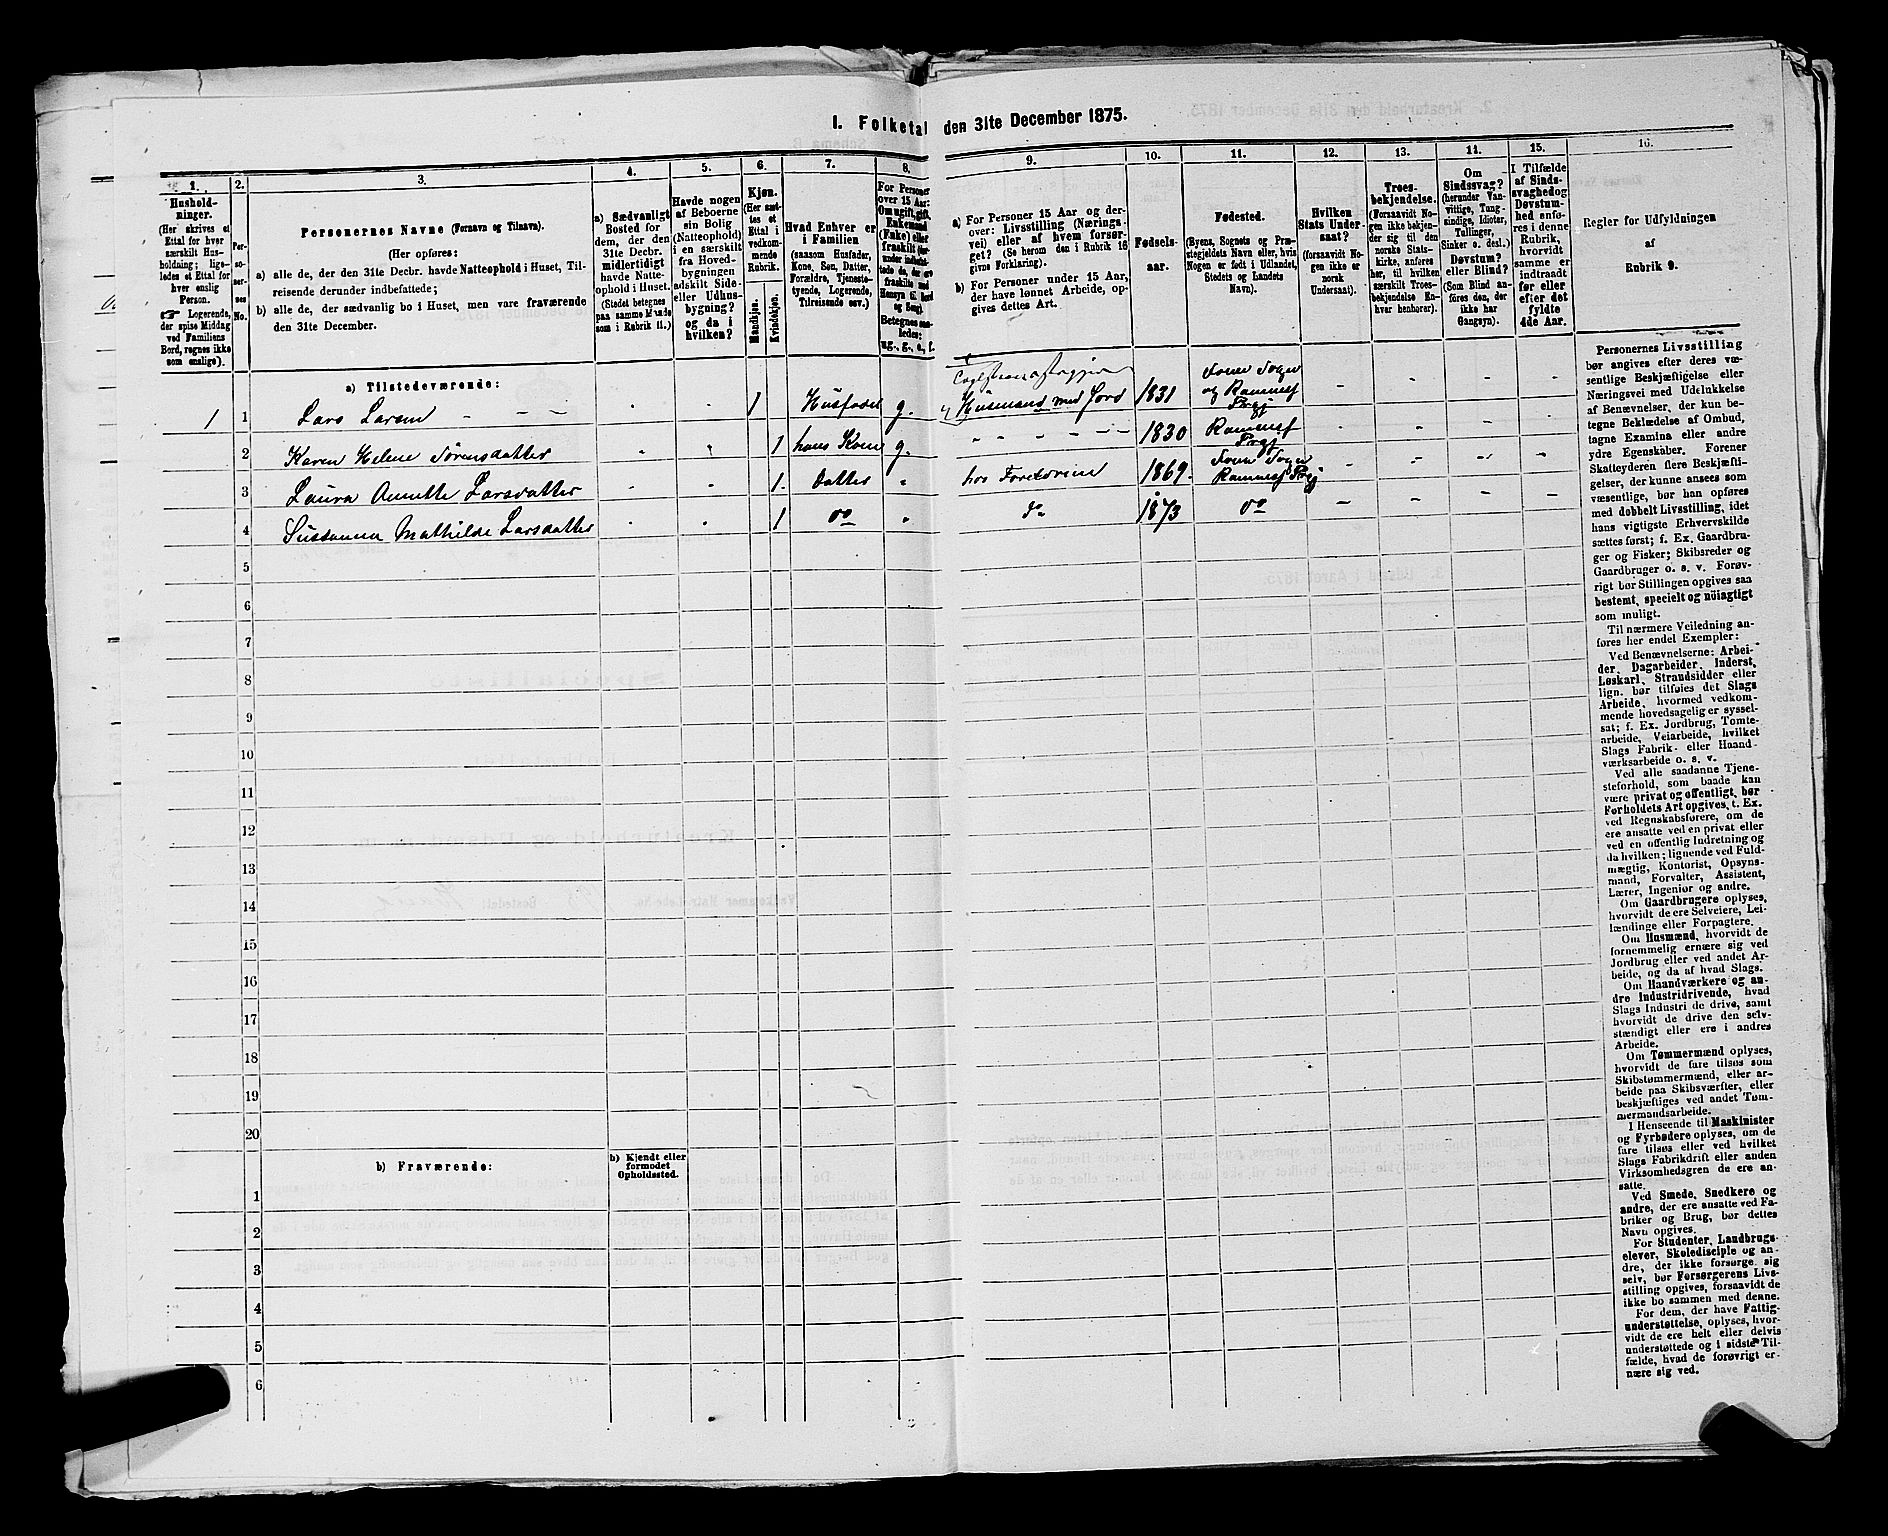 I. Folketal den 31te December 1875.
1. 2. 3. 4. 5. 6. 7. 8. 9. 10. 11. 12. 13. 14. 15. 16.
Hushold-
ninger.
(Her skrives et
Ettal for hver
særskilt Hus-
holdning; lige-
ledes et Ettal for
hver enslig
Person.
☞ Logerende,
der spise Middag
ved Familiens
Bord, regnes ikke
som enslige).
Per-
so-
ner-
nes
No.
Personernes Navne (Fornavn og Tilnavn).
(Her opføres:
a) alle de, der den 31te Decbr. havde Natteophold i Huset, Til-
reisende derunder indbefattede;
b) alle de, der sædvanlig bo i Huset, men vare fraværende
den 31te December.
a) Sædvanligt
Bosted for
dem, der den
31te Decbr.
midlertidigt
havde Natte-
ophold i Huset.
(Stedet betegnes
paa samme Maade
som i Rubrik 11.)
Havde nogen
af Beboerne
sin Bolig
(Natteophold)
i en særskilt
fra Hoved-
bygningen
adskilt Side-
eller Udhus-
bygning?
og da i
hvilken?
Kjøn.
(Her sæt-
tes et
Ettal i
vedkom-
mende
Rubrik.
Mandkjøn.
Kvindekjøn.
Hvad Enhver er
i Familien
(saasom Husfader,
Kone, Søn, Datter,
Forældre, Tjeneste-
tyende, Logerende,
Tilreisende osv.)
For Personer
over 15 Aar:
Om ugift, gift,
Enkemand
(Enke) eller
fraskilt
Betegnes saa-
ledes:
ug., g., e., f.
a) For Personer 15 Aar og der-
over: Livsstilling (Nærings-
vei) eller af hvem forsør-
get? (Se herom den i Rubrik 16
givne Forklaring).
b) For Personer under 15 Aar,
der have lønnet Arbeide, op-
gives dettes Art.
Fødsels-
aar.
Fødested.
(Byens, Sognets og Præ-
stegjeldets Navn eller, hvis
Nogen er født i Udlandet,
Stedets og Landets
Navn).
Hvilken
Stats Under-
saat?
(forsaavidt No-
gen ikke er
norsk
Undersaat).
Troes-
bekjendelse.
(Forsaavidt No-
gen ikke bekjen-
der sig til den
norske Stats-
kirke, anføres
her, til hvilken
særskilt Troes-
bekjendelse En-
hver henhører).
Om
Sindssvag?
(herunder Van-
vittige, Tung-
sindige, Idioter,
Tullinger,
Sinker o. desl.)
Døvstum?
eller Blind?
(Som Blind an-
føres den, der
ikke har
Gangsyn).
I Tilfælde
af Sinds-
svaghed og
Døvstum-
hed anfø-
res i denne
Rubrik,
hvorvidt
samme er
indtraadt
før eller
efter det
fyldte
4de Aar.
Regler for Udfyldningen
af
Rubrik 9.
a) Tilstedeværende:
1 1 Lars Larsen 1 Husfader g. Husmand med Jord 1831
2 Karen Helene Sørensdatter 1 hans Kone g. 1830
3 Laura Annette Larsdatter 1. Datter hos Forældrene 1869.
4 Sussanna Mathilde Larsdatter 1 do do 1873 do
5
6
7
8
9
10
11
12
13
14
15
16
17
18
19
20
b) Fraværende:
b) Kjendt eller
formodet
Opholdssted.
1
2
3
4
5
6
Personernes Livsstilling
bør angives efter deres væ-
sentlige Beskjæftigelse eller
Næringsvei med Udelukkelse
af Benævnelser, der kun be-
tegne Beklædelse af Ombud,
tagne Examina eller andre
ydre Egenskaber. Forener
Skatteyderen flere Beskjæfti-
gelser, der kunne ansees som
væsentlige, bør han opføres
med dobbelt Livsstilling, idet
hans vigtigste Erhvervskilde
sættes først; f. Ex. Gaardbru-
ger og Fisker; Skibsreder og
Gaardbruger o. s. v. Forøv-
rigt bør Stillingen opgives saa
bestemt, specielt og nöiagtigt
som muligt.
Til nærmere Veiledning an-
føres her endel Exempler:
Ved Benævnelserne: Arbei-
der, Dagarbeider, Inderst,
Løskarl, Strandsidder eller
lign. bør tilføies det Slags
Arbeide, hvormed vedkom-
mende hovedsagelig er syssel-
sat; f. Ex. Jordbrug, Tomte-
arbeide, Veiarbeide, hvilket
Slags Fabrik- eller Haand-
værksarbeide o. s. v.
Ved alle saadanne Tjene-
steforhold, som baade kan
være privat og offentligt, bør
Forholdets Art opgives, t. Ex.
ved Regnskabsførere, om de
ere ansatte ved en privat eller
ved en offentlig Indretning og
da hvilken; lignende ved Fuld-
mægtig, Kontorist, Opsyns-
mand, Forvalter, Assistent,
Lærer, Ingeniør og andre.
Om Gaardbrugere oplyses,
hvorvidt de ere Selveiere, Lei-
lændinge eller Forpagtere.
Om Husmænd, hvorvidt de
fornemmelig ernære sig ved
Jordbrug eller ved andet Ar-
beide, og da af hvad Slags.
Om Haandværkere og an-
dre Industridrivende, hvad
Slags Industri de drive, samt
hvorvidt de drive den selv-
stændigt eller ere i andres
Arbeide.
Om Tømmermænd oplyses,
hvorvidt de fare tilsøs som
Skibstømmermænd, eller ar-
beide paa Skibsværfter, eller
beskjæftiges ved andet Tøm-
mermandsarbeide.
I Henseende til Maskinister
og Fyrbødere oplyses, om de
fare tilsøs eller ved hvilket
Slags Fabrikdrift eller anden
Virksomhedsgren de ere an-
satte.
Ved Smede, Snedkere og
andre, der ere ansatte ved Fa-
briker og Brug, bør dettes
Navn opgives.
For Studenter, Landbrugs-
elever, Skoledisciple og an-
dre, der ikke forsørge sig
selv, bør Forsørgerens Livs-
stilling opgives, forsaavidt de
ikke bo sammen med denne.
For dem, der have Fattig-
understøttelse, oplyses, hvor-
vidt de ere helt eller delvis
understøttede og i sidste Til-
fælde, hvad de forøvrigt er-
nære sig ved.